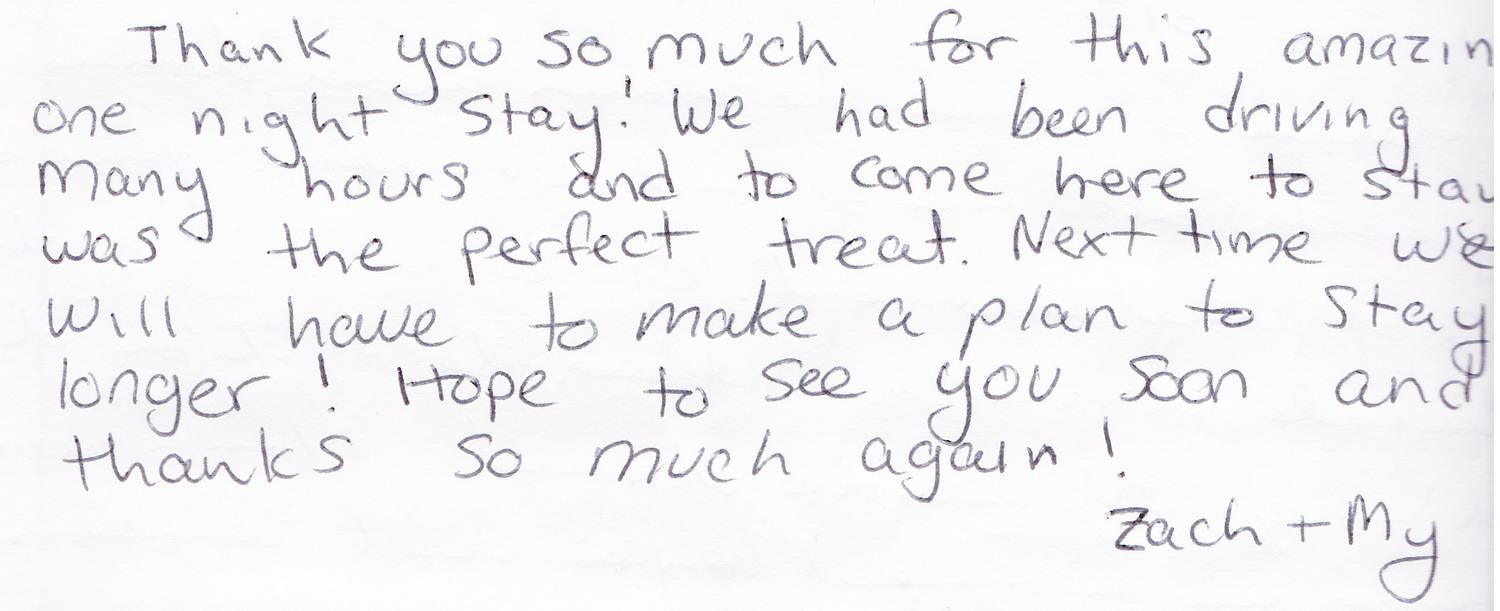 Thank you so much for this amazin
one night stay! We had been driving
many hours and to come here to stay
was the perfect treat. Next time we
will have to make a plan to stay
longer! Hope to see you soon and
thanks so much again!
Zach + My